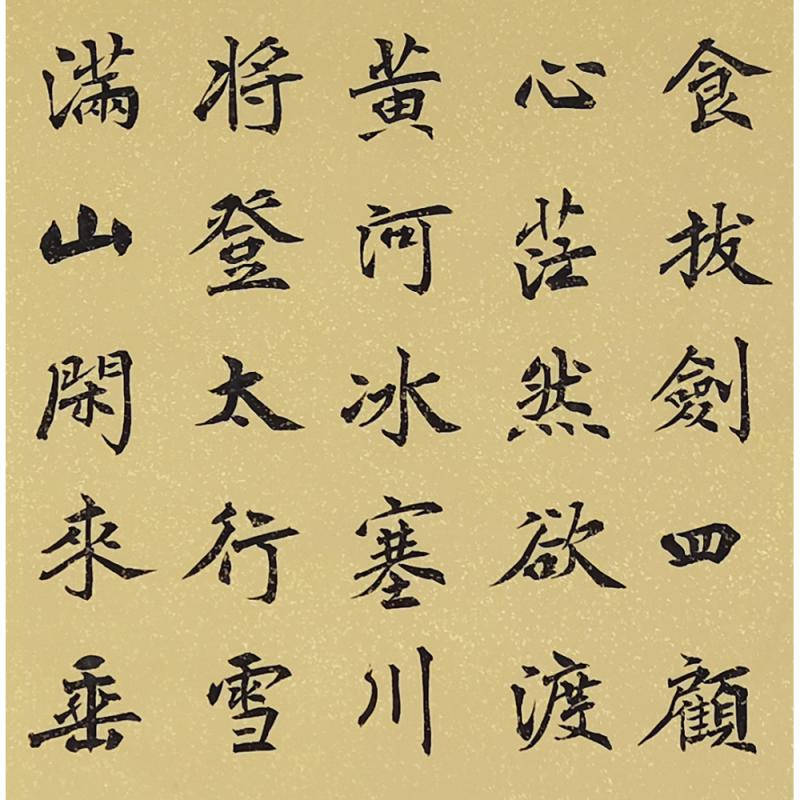 食拔劍四顧
心茫然欲渡
黃河冰塞川
將登太行雪
滿山閑來垂